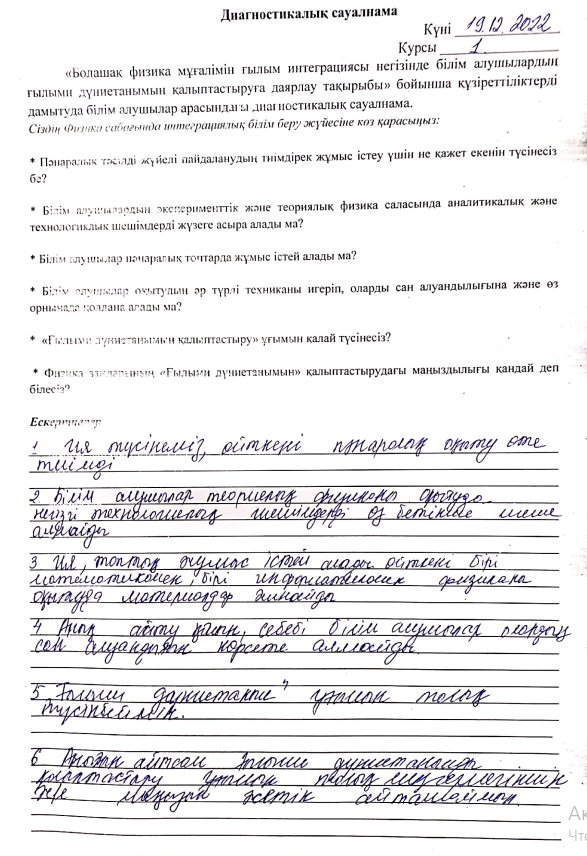 Диагностикалық сауалнама
Күні 19.12.2022
Курсы 1
«Болашақ физика мұғалімін ғылым интеграциясы негізінде білім алушылардың
ғылыми дүниетанымын қалыптастыруға даярлау тақырыбы» бойынша құзіреттіліктерді
дамытуда білім алушылар арасындағы диагностикалық сауалнама.
Сіздің Физика сабағында интеграциялық білім беру жүйесіне көз қарасыңыз:
* Пәнаралық тәсілді жүйелі пайдаланудың тиімдірек жұмыс істеу үшін не қажет екенін түсінесіз
бе?
* Білім алушылардың эксперименттік және теориялық физика саласында аналитикалық және
технологиялық шешімдерді жүзеге асыра алады ма?
* Білім алушылар пәнаралық топтарда жұмыс істей алады ма?
* Білім алушылар оқытудың әр түрлі техниканы игеріп, оларды сан алуандылығына және өз
орнымда қолдана алады ма?
* «Ғылыми дүниетанымын қалыптастыру» ұғымын қалай түсінесіз?
* Физика заңдарының «Ғылыми дүниетанымын» қалыптастырудағы маңыздылығы қандай деп
білесіз?
Ескертпелер
1 Ия түсінеміз, өйткені пәнаралық оқыту өте
тиімді
2 Білім алушылар теориялық физиканы оқытуда
негізгі технологиялық шешімдерді өз бетінше шеше
алмайды
3 Ия, топтық жұмыс істей алады өйткені бірі
математикамен, бірі информатикамен физиканы
оқытуда материалдар жинайды
4 Анық айту қиын, себебі білім алушылар олардың
сан алуандығын көрсете алмайды.
5 Ғылыми дүниетаным" ұғымын толық
түсінбеймін.
6 Анығын айтсам ғылыми дүниетанымды
қалыптастыру ұғымын толық меңгермегінмін
және маңызын жетік айта алмаймын.